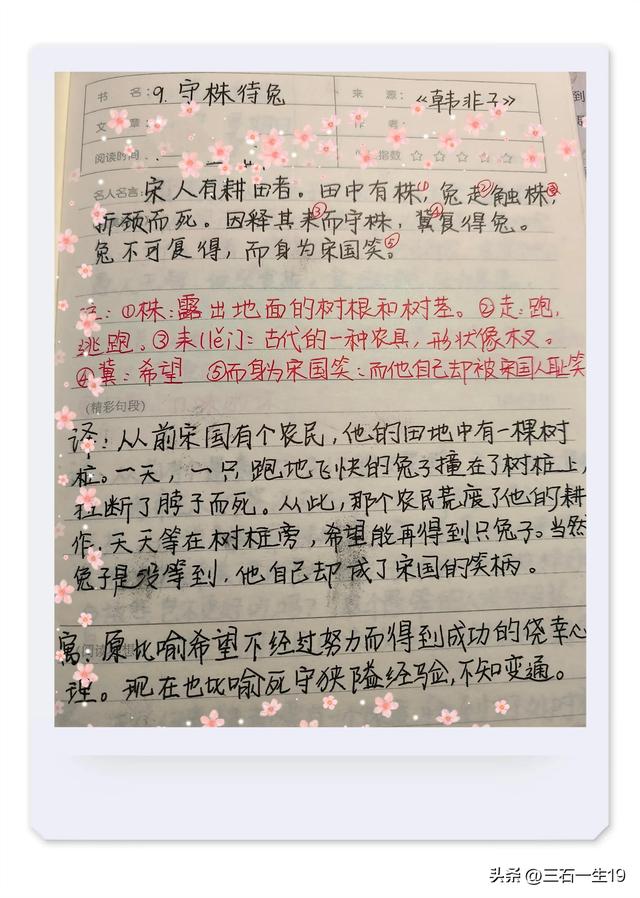 书 名：9.守株待兔 来 源：《韩非子》 到
文 章： 作 者：
阅读时间： 指数 ☆ ☆ ☆ ☆ ☆
名人名言：宋人有耕田者。田中有株①，兔走②触株，
折颈而死。因释其耒③而守株，冀④复得兔。
兔不可复得，而身为宋国笑⑤。
①株：露出地面的树根和树茎。②走：跑，
逃跑。③耒(lěi)：古代的一种农具，形状像木叉。
④冀：希望 ⑤而身为宋国笑：而他自己却被宋国人耻笑
(精彩句段)
译：从前宋国有个农民，他的田地中有一棵树
桩。一天，一只跑地飞快的兔子撞在了树桩上，
扭断了脖子而死。从此，那个农民荒废了他的耕
作，天天等在树桩旁，希望能再得到只兔子。当然
兔子是没等到，他自己却成了宋国的笑柄。
寓：原比喻希望不经过努力而得到成功的侥幸心
理。现在也比喻死守狭隘经验，不知变通。
头条 @三石一生19